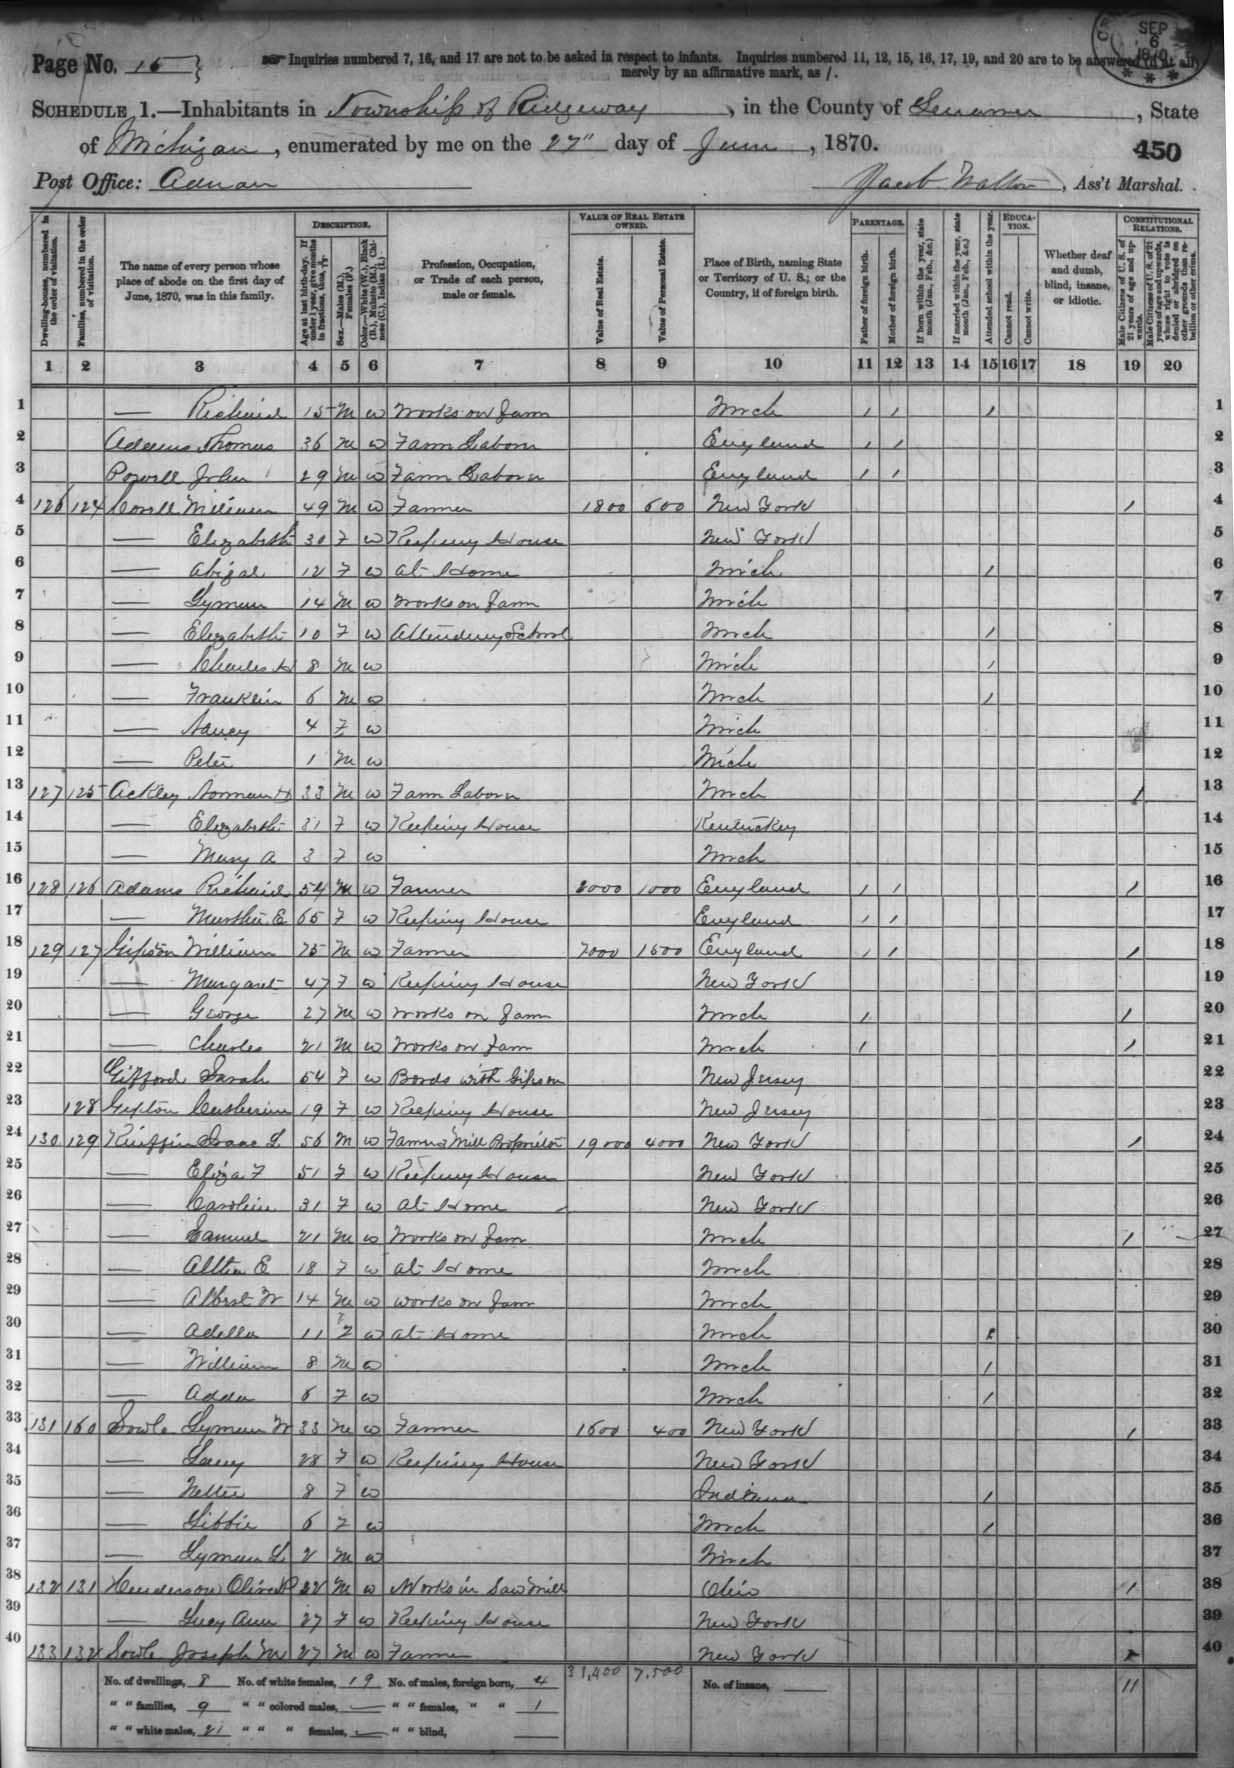 Page No. 15
Inquiries numbered 7, 16, and 17 are not to be asked in respect to infants. Inquiries numbered 11, 12, 15, 16, 17, 19, and 20 are to be answered (if at all)
merely by an affirmative mark, as /.
SEP 6 1870
SCHEDULE 1.—Inhabitants in Township of Ridgeway, in the County of Lenawee, State
of Michigan, enumerated by me on the 27" day of June, 1870.
450
Post Office: Adrian
Jacob Walton, Ass't Marshal.
Dwelling-houses, numbered in the order of visitation.
Families, numbered in the order of visitation.
The name of every person whose place of abode on the first day of June, 1870, was in this family.
DESCRIPTION.
Age at last birth-day. If under 1 year, give months in fractions, thus, 3/12
Sex.—Males (M.), Females (F.)
Color.—White (W.), Black (B.), Mulatto (M.), Chinese (C.), Indian (I.)
Profession, Occupation, or Trade of each person, male or female.
VALUE OF REAL ESTATE OWNED.
Value of Real Estate.
Value of Personal Estate.
Place of Birth, naming State or Territory of U. S.; or the Country, if of foreign birth.
PARENTAGE.
Father of foreign birth.
Mother of foreign birth.
If born within the year, state month (Jan., Feb., &c.)
If married within the year, state month (Jan., Feb., &c.)
Attended school within the year.
EDUCATION.
Cannot read.
Cannot write.
Whether deaf and dumb, blind, insane, or idiotic.
CONSTITUTIONAL RELATIONS.
Male Citizens of U. S. of 21 years of age and upwards.
Male Citizens of U. S. of 21 years of age and upwards, whose right to vote is denied or abridged on other grounds than rebellion or other crime.
1 2 3 4 5 6 7 8 9 10 11 12 13 14 15 16 17 18 19 20
1 — Richard 15 M W Works on farm Mich / / / 1
2 Adams Thomas 36 M W Farm Labor England / / 2
3 Powell John 29 M W Farm Labor England / / 3
4 126 124 William 49 M W Farmer 1800 600 New York / 4
5 — Elizabeth 30 F W Keeping House New York 5
6 — Abigal 12 F W At Home Mich / 6
7 — Lyman 14 M W Works on farm Mich 7
8 — Elizabeth 10 F W Attending School Mich / 8
9 — Charles H 8 M W Mich / 9
10 — Franklin 6 M W Mich / 10
11 — Nancy 4 F W Mich 11
12 — Peter 1 M W Mich 12
13 127 125 Ackley Norman H 33 M W Farm Labor Mich / 13
14 — Elizabeth 31 F W Keeping House Kentuckey 14
15 — Mary A 3 F W Mich 15
16 128 126 Adams Richard 54 M W Farmer 2000 1000 England / / / 16
17 — Martha E 65 F W Keeping House England / / 17
18 129 127 Gipson William 75 M W Farmer 7000 1500 England / / / 18
19 — Margaret 47 F W Keeping House New York 19
20 — George 27 M W Works on farm Mich / / 20
21 — Charles 21 M W Works on farm Mich / / 21
22 Gifford Sarah 54 F W Bords with Gipson New Jersey 22
23 128 Catherine 19 F W Keeping House New Jersey 23
24 130 129 Isaac L. 56 M W Farmer & Mill Proprietor 19000 4000 New York / 24
25 — Eliza F 51 F W Keeping House New York 25
26 — Caroline 31 F W At Home New York 26
27 — Samuel 21 M W Works on farm Mich / 27
28 — E 18 F W At Home Mich 28
29 — Albert W 14 M W Works on farm Mich 29
30 — Adella 11 F W At Home Mich / 30
31 — William 8 M W Mich / 31
32 — Adda 6 F W Mich / 32
33 131 130 Sowle Lyman W 33 M W Farmer 1600 400 New York / 33
34 — 28 F W Keeping House New York 34
35 — Nettie 8 F W Indiana / 35
36 — Libbie 6 F W Mich / 36
37 — Lyman L. 2 M W Mich 37
38 132 131 Henderson Oliver 22 M W Works in Saw Mill Ohio / 38
39 — Lucy Ann 27 F W Keeping House New York 39
40 133 132 Sowle Joseph M 27 M W Farmer New York / 40
No. of dwellings, 8 No. of white females, 19 No. of males, foreign born, 4 31,400 7,500 No. of insane, — 11
" " families, 9 " " colored males, — " " females, " " 1
" " white males, 21 " " " females, — " " blind,